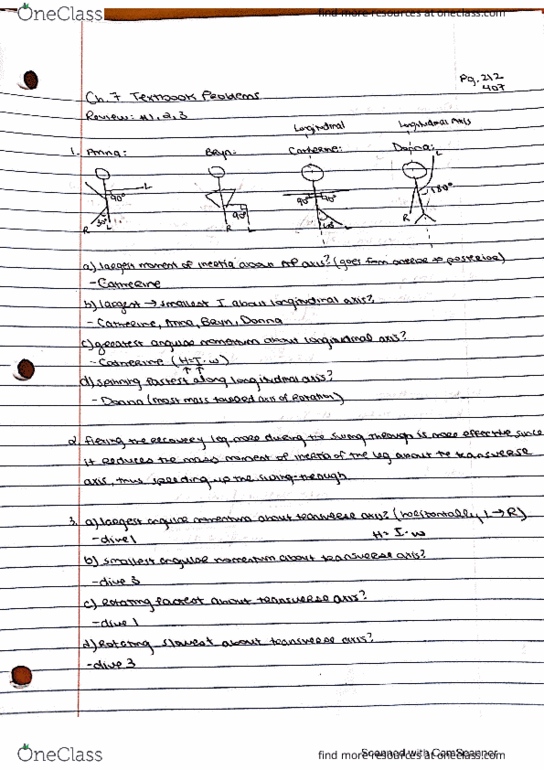 OneClass
find more resources at oneclass.com
Pg. 212
407
Ch. 7 Textbook Problems
Review: #1, 2, 3
Longitudinal
Longitudinal Axis
1. Anna: Bryn: Catherine: Donna:
L
90° 90° 90° 90° 180°
30°
R L R L R
a) largest moment of inertia about AP axis? (goes from anterior to posterior)
- Catherine
b) largest → smallest I about longitudinal axis?
- Catherine, Anna, Bryn, Donna
c) greatest angular momentum about longitudinal axis?
- Catherine (H=I·w)
↑ ↑
d) spinning fastest along longitudinal axis?
- Donna (most mass toward axis of rotation)
2. flexing the recovery leg more during the swing through is more effective since
it reduces the mass moment of inertia of the leg about the transverse
axis, thus speeding up the swing-through.
3. a) largest angular momentum about transverse axis? (horizontally L → R)
- dive 1 H = I·w
b) smallest angular momentum about transverse axis?
- dive 3
c) Rotating fastest about transverse axis?
- dive 1
d) Rotating slowest about transverse axis?
- dive 3
OneClass
Scanned with CamScanner
find more resources at oneclass.com